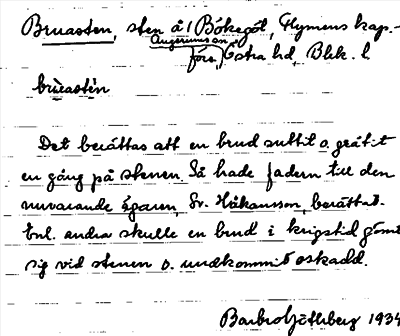 Bruasten, sten å 1 Bökegöl, Flymens kap.-
Augerums sn
förs, Östra hd, Blek. l.
brùastèn
Det berättas att en brud suttit o. gråtit
en gång på stenen. Så hade fadern till den
nuvarande ägaren, Sv. Håkansson, berättat.
Enl. andra skulle en brud i krigstid gömt
sig vid stenen o. undkommit oskadd.
Barbro 1934